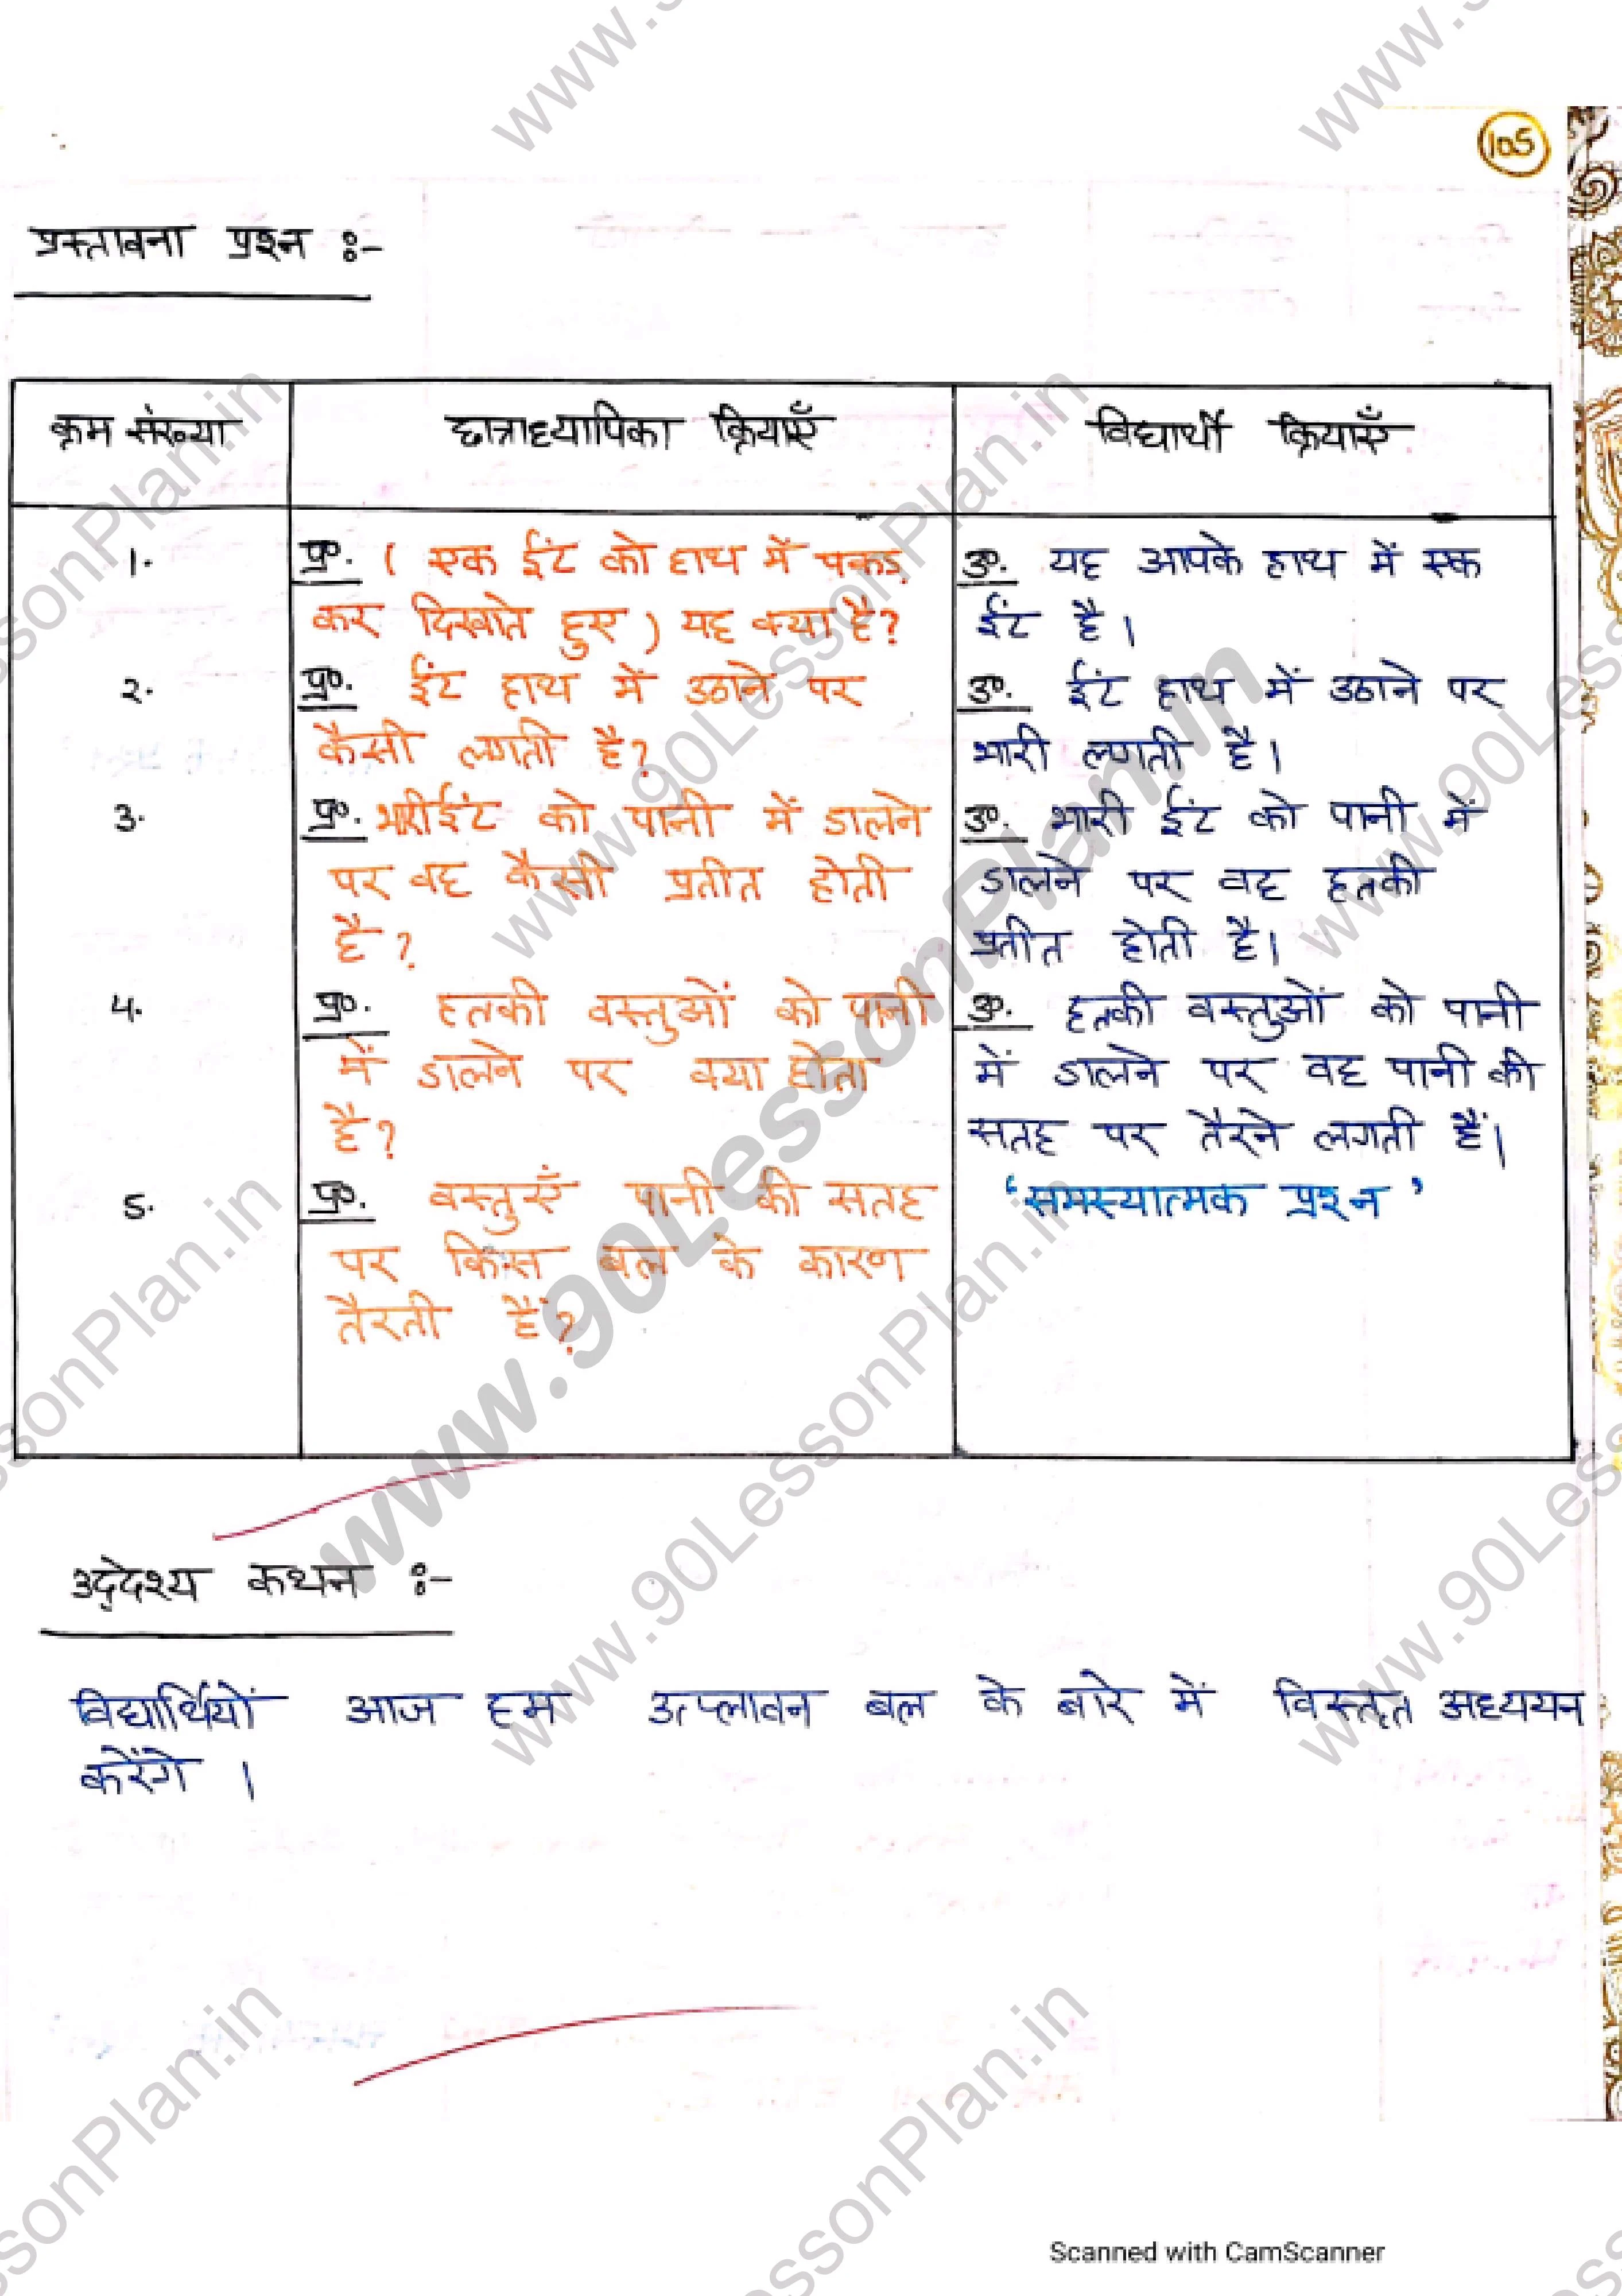 105
प्रस्तावना प्रश्न :-
क्रम संख्या छात्राध्यापिका क्रियाएँ विद्यार्थी क्रियाएँ
1. प्र०. ( एक ईंट को हाथ में पकड़ उ०. यह आपके हाथ में एक
कर दिखाते हुए ) यह क्या है? ईंट है।
2. प्र०. ईंट हाथ में उठाने पर उ०. ईंट हाथ में उठाने पर
कैसी लगती है? भारी लगती है।
3. प्र०. भारी ईंट को पानी में डालने उ०. भारी ईंट को पानी में
पर वह कैसी प्रतीत होती डालने पर वह हल्की
है? प्रतीत होती है।
4. प्र०. हल्की वस्तुओं को पानी उ०. हल्की वस्तुओं को पानी
में डालने पर क्या होता में डालने पर वह पानी की
है? सतह पर तैरने लगती हैं।
5. प्र०. वस्तुएँ पानी की सतह 'समस्यात्मक प्रश्न'
पर किस बल के कारण
तैरती हैं?
उद्देश्य कथन :-
विद्यार्थियों आज हम उत्प्लावन बल के बारे में विस्तृत अध्ययन
करेंगे ।
www.90LessonPlan.in
Scanned with CamScanner